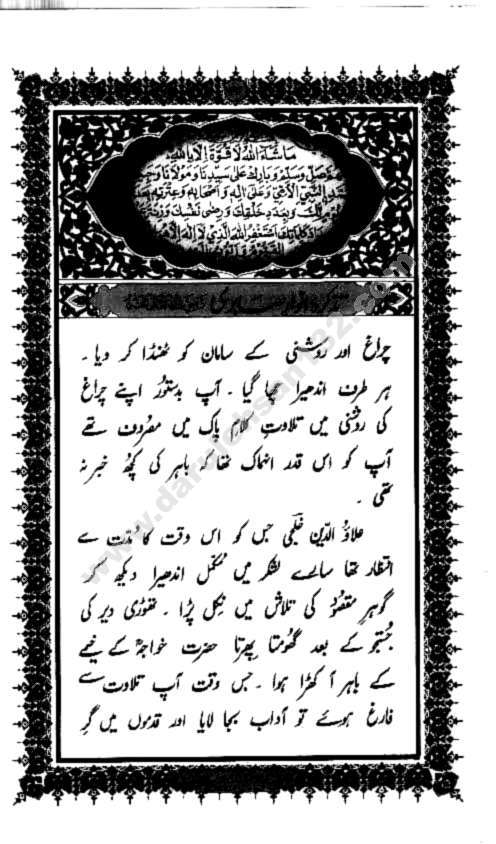 ماشاء الله لا قوة الا بالله
وصل وسلم وبارك على سيدنا ومولانا
النبي الامي وعلى اله واصحابه وعترته بعدد
وبعدد خلقك ورضى نفسك وزنة
استغفر الله الذي لا اله الا هو
چراغ اور روشنی کے سامان کو ٹھنڈا کر دیا ۔
ہر طرف اندھیرا چھا گیا ۔ آپ بدستور اپنے چراغ
کی روشنی میں تلاوتِ کلامِ پاک میں مصروف تھے
آپ کو اس قدر انہماک تھا کہ باہر کی کچھ خبر نہ
تھی ۔
علاؤ الدین خلجی جس کو اس وقت کا مدّت سے
انتظار تھا سالے لشکر میں مکمّل اندھیرا دیکھ کر
گوہرِ مقصُود کی تلاش میں نِکل پڑا ۔ تھوڑی دیر کی
جُستجو کے بعد گھومتا پھرتا حضرت خواجہؒ کے خیمے
کے باہر آ کھڑا ہوا ۔ جس وقت آپ تلاوت سے
فارغ ہوئے تو آداب بجا لایا اور قدموں میں گر
www.darulehsan92.com